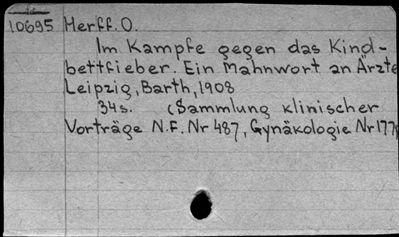 10695 Herff. O.
Im Kampfe gegen das Kind-
bettfieber. Ein Mahnwort an Ärzte
Leipzig, Barth, 1908
34s. (Sammlung klinischer
Vorträge N.F. Nr 487, Gynäkologie Nr 177)